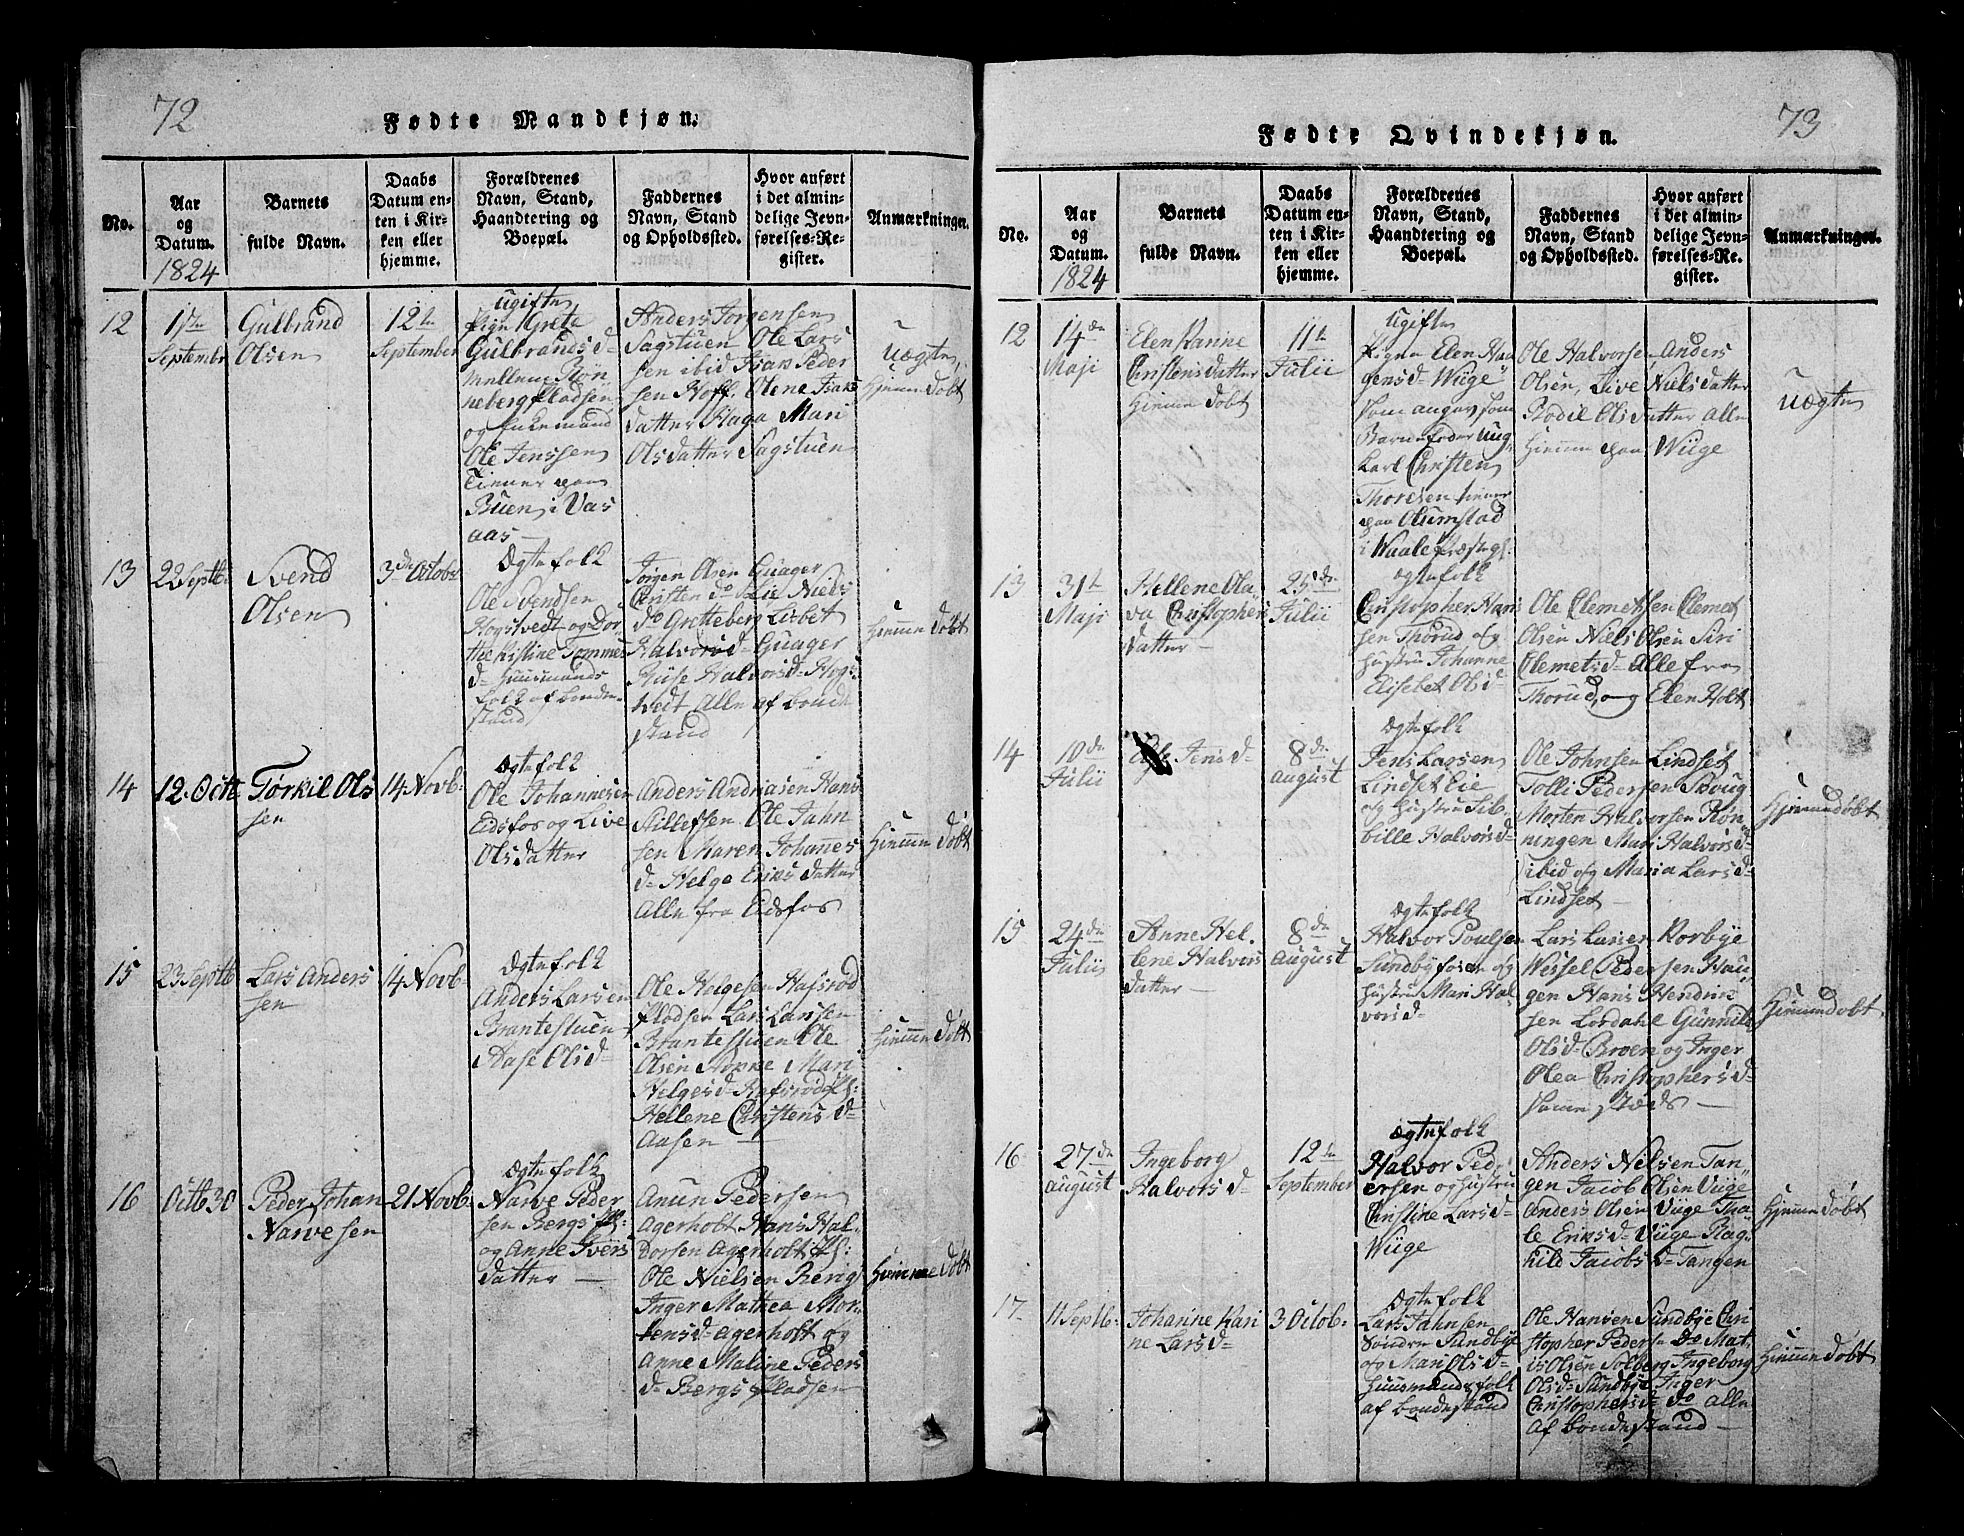 72
Fødte Mandkjøn.
No.
Aar
og
Datum.
1824
Barnets
fulde Navn.
Daabs
Datum en-
ten i Kir-
ken eller
hjemme.
Forældrenes
Navn, Stand,
Haandtering og
Boepæl.
Faddernes
Navn, Stand
og Opholdssted.
Hvor anført
i det almin-
delige Jevn-
førelses-Re-
gister.
Anmærkninger.
12
1ste
September
Gulbrand
Olsen
12te
September
Ugifte
Pige Grete
Gulbrandsd-
Mellem Røn
neberg Pladsen
og Enkemand
Ole Jenssen
Tiener paa
Buen i Vas
aas-
Anders Jorgensen
Sagstuen Ole Lars
sen ibid Isak Peder
sen Hoff, Olene Isaks
datter Haga Mari
Olsdatter Sagstuen
Uægte
Hiemme døbt
13
22 Septb
Svend
Olsen
3de Octobr
Ægtefolk
Ole Svendsen
Hogstvedt og Dor-
the Kistine Tommes
d- Huusmands
folk af Bonde-
stand
Jorgen Olsen Guager
Christen do Lie Niels
do Gretteberg Lisbet
Halvorsd- Guager
Halvorsd- Hogs
tvedt Alle af bonde
stand
Hiemme døbt
14
12. Octb
Torkil Ols
sen
14 Novb-
Ægtefolk
Ole Johannesen
Eidsfos og Live
Olsdatter
Anders Andriasen Hans
Stillefsen Ole Jahn
sen Maren Johannes
d- Helge Eriksdatter
Alle fra Eidsfos
Hiemme døbt
15
23 Septb
Lars Anders
sen
14 Novb-
Ægtefolk
Anders Larsen
Brantestuen
Aase Olsd-
Ole Helgesen Hafsrød
Pladsen Lars Larsen
Brantestuen Ole
Olsen Hoppe Mari
Helgesd- Hafsrød Pl:
Hellene Christensd-
Aasen —
Hiemme døbt
16
Octb 30
Peder Johan
Narvesen
21 Novb-
Ægtefolk
Narve Peder
sen Bergs Pl:
og Anne Ivers
datter —
Anun Pedersen
Agerholt Hans Hal-
vorsen Agerholt Pl:
Ole Nielsen Berig
Inger Mathea Mor-
tensd- Agerholt og
Anne Maline Peders
d- Bergs Pladsen
Hiemme døbt
73
Fødte Qvindekjøn.
No.
Aar
og
Datum.
1824
Barnets
fulde Navn.
Daabs
Datum en-
ten i Kir-
ken eller
hjemme.
Forældrenes
Navn, Stand,
Haandtering og
Boepæl.
Faddernes
Navn, Stand
og Opholdssted.
Hvor anført
i det almin-
delige Jevn-
førelses-Re-
gister.
Anmærkninger.
12
14de
Maji
Elen Karine
Christensdatter
Hiemme døbt
11te
Julii
Ugifte
Pigen Elen Haa
gensd- Wiige
som angav som
Barnefader Ung-
karl Christen
Thoresen tiener
paa Olumstad
i Waale Præstegl.
Ole Halvorsen Anders
Olsen, Live Nielsdatter
Bodil Olsdatter alle
hiemme paa Wiige
Uægte
13
31te
Maji
Hellene Ola-
va Christophers
datter —
25de
Julii
Ægtefolk
Christopher Han
sen Thorud og
Hustru Johanne
Elisebet Olsd-
Ole Clemetsen Clemet
Olsen Niels Olsen Siri
Clemetsd- Alle fra
Thorud, og Elen Holt
14
10de
Julii
Jensd-
8de
August
Ægtefolk
Jens Larsen
Lindset Eie
og Hustru Sib-
bille Halvorsd-
Ole Johnsen Lindset
Tolli Pedersen Skoug
Morten Halvorsen Røn-
ningen Mari Halvorsd-
ibid og Maria Larsd-
Lindset —
Hjemmedøbt
15
24de
Julii
Anne Hel-
lene Halvors
datter —
8de
August
Ægtefolk
Halvor Poulsen
Sundbyfosen og
Hustru Mari Hal-
vorsd-
Lars Larsen Korbye
Wessel Pedersen Hau-
gen Hans Hendrik
sen Lordahl Gunnild
Olsd- Broen og Inger
Olea Christophersd-
samme steds —
Hjemmedøbt
16
27de
August
Ingeborg
Halvorsd-
12te
September
Ægtefolk
Halvor Ped-
ersen og Hustru
Christine Larsd-
Wiige
Anders Nelsen Tan-
gen Jacob Olsen Viige
Anders Olsen Viige Tha-
le Eriksd- Viige Rag-
hild Jacobsd- Tangen
Hjemme døbt
17-
11 Septb:
Johanne Kari
ne Larsd-
3 Octob-
Ægtefolk
Lars Jahnsen
Søndre Sundbye
og Mari Olsd-
Huusmandsfolk
af bondestand
Ole Hansen Sundbye Chri
stopher Pedersen Do Mat
is Olsen Solberg Ingeborg
Olsd- Sundbye Inger
Christophersd- do alle
af bondestand —
Hiemme døbt